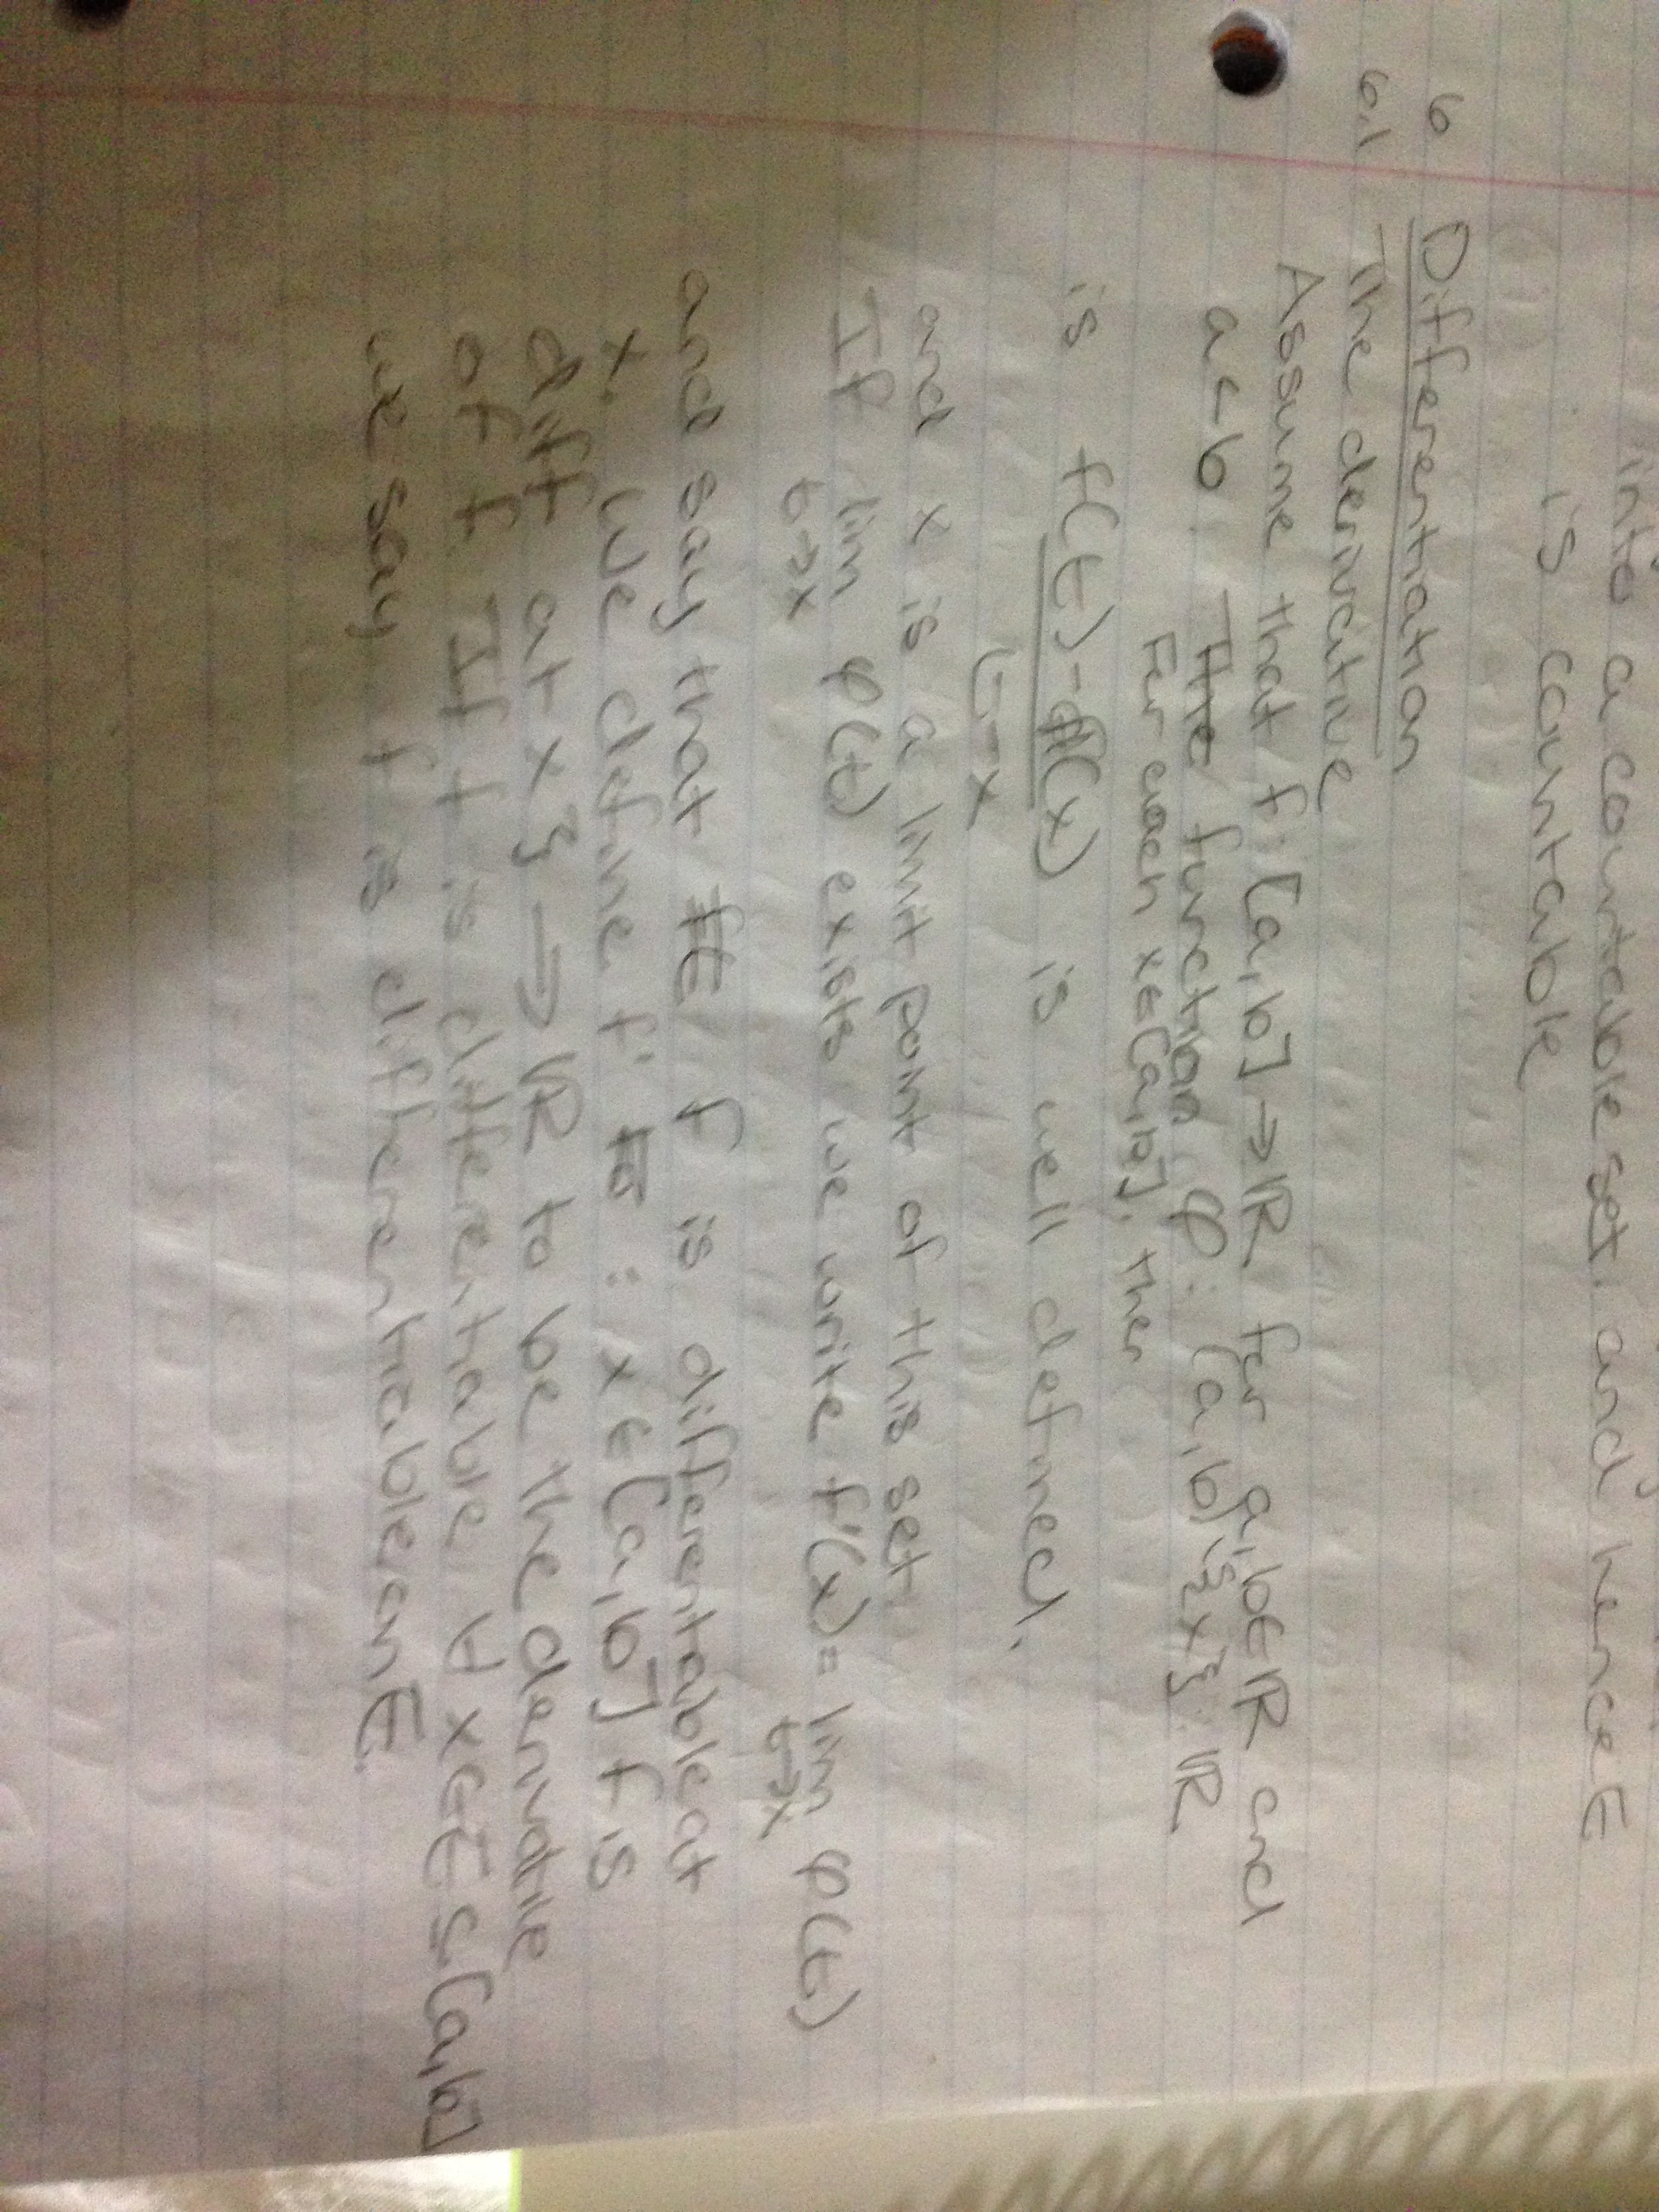 into a countable set, and hence E
is countable
6 Differentiation
6.1 The derivative
Assume that f: [a,b] → ℝ for a,b∈ℝ and
a<b. The function φ: (a,b)\{x} ℝ
For each x∈[a,b], the
is f(t)-f(x) / t-x is well defined.
and x is a limit point of this set
If lim t→x φ(t) exists we write f'(x) = lim t→x φ(t)
and say that f is differentable at
x. We define f' : x∈[a,b] f is
diff at x} → ℝ to be the derivative
of f. If f is differentiable ∀ x∈E⊆[a,b]
we say f is differentiable on E.